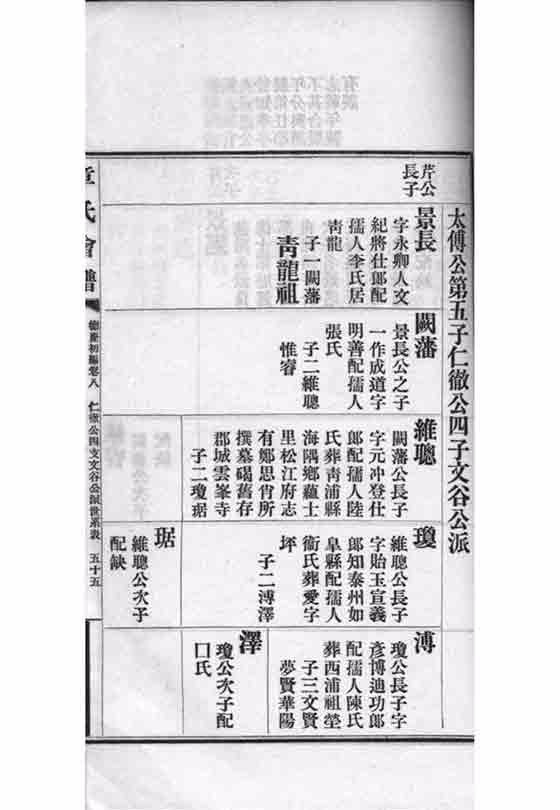 太傅公第五子仁徹公四子文谷公派
芹公
長子
景長
字永卿人文
紀將仕郎配
孺人李氏居
青龍
子一闕藩
青龍祖
闕藩
景長公之子
一作成道字
明善配孺人
張氏
子二維聰
惟睿
維聰
闕藩公長子
字元冲登仕
郎配孺人陸
氏葬青浦縣
海隅鄉蘊士
里松江府志
有鄭思肖所
撰墓碣舊存
郡城雲峯寺
子二瓊琚
瓊
維聰公長子
字貽玉宣義
郎知泰州如
皐縣配孺人
衞氏葬愛字
圩
子二溥澤
琚
維聰公次子
配缺
溥
瓊公長子字
彥博迪功郎
配孺人陳氏
葬西浦祖塋
子三文賢
夢賢華陽
澤
瓊公次子配
囗氏
章氏會譜
德慶初編卷八
仁徹公四支文谷公派世系表
五十五